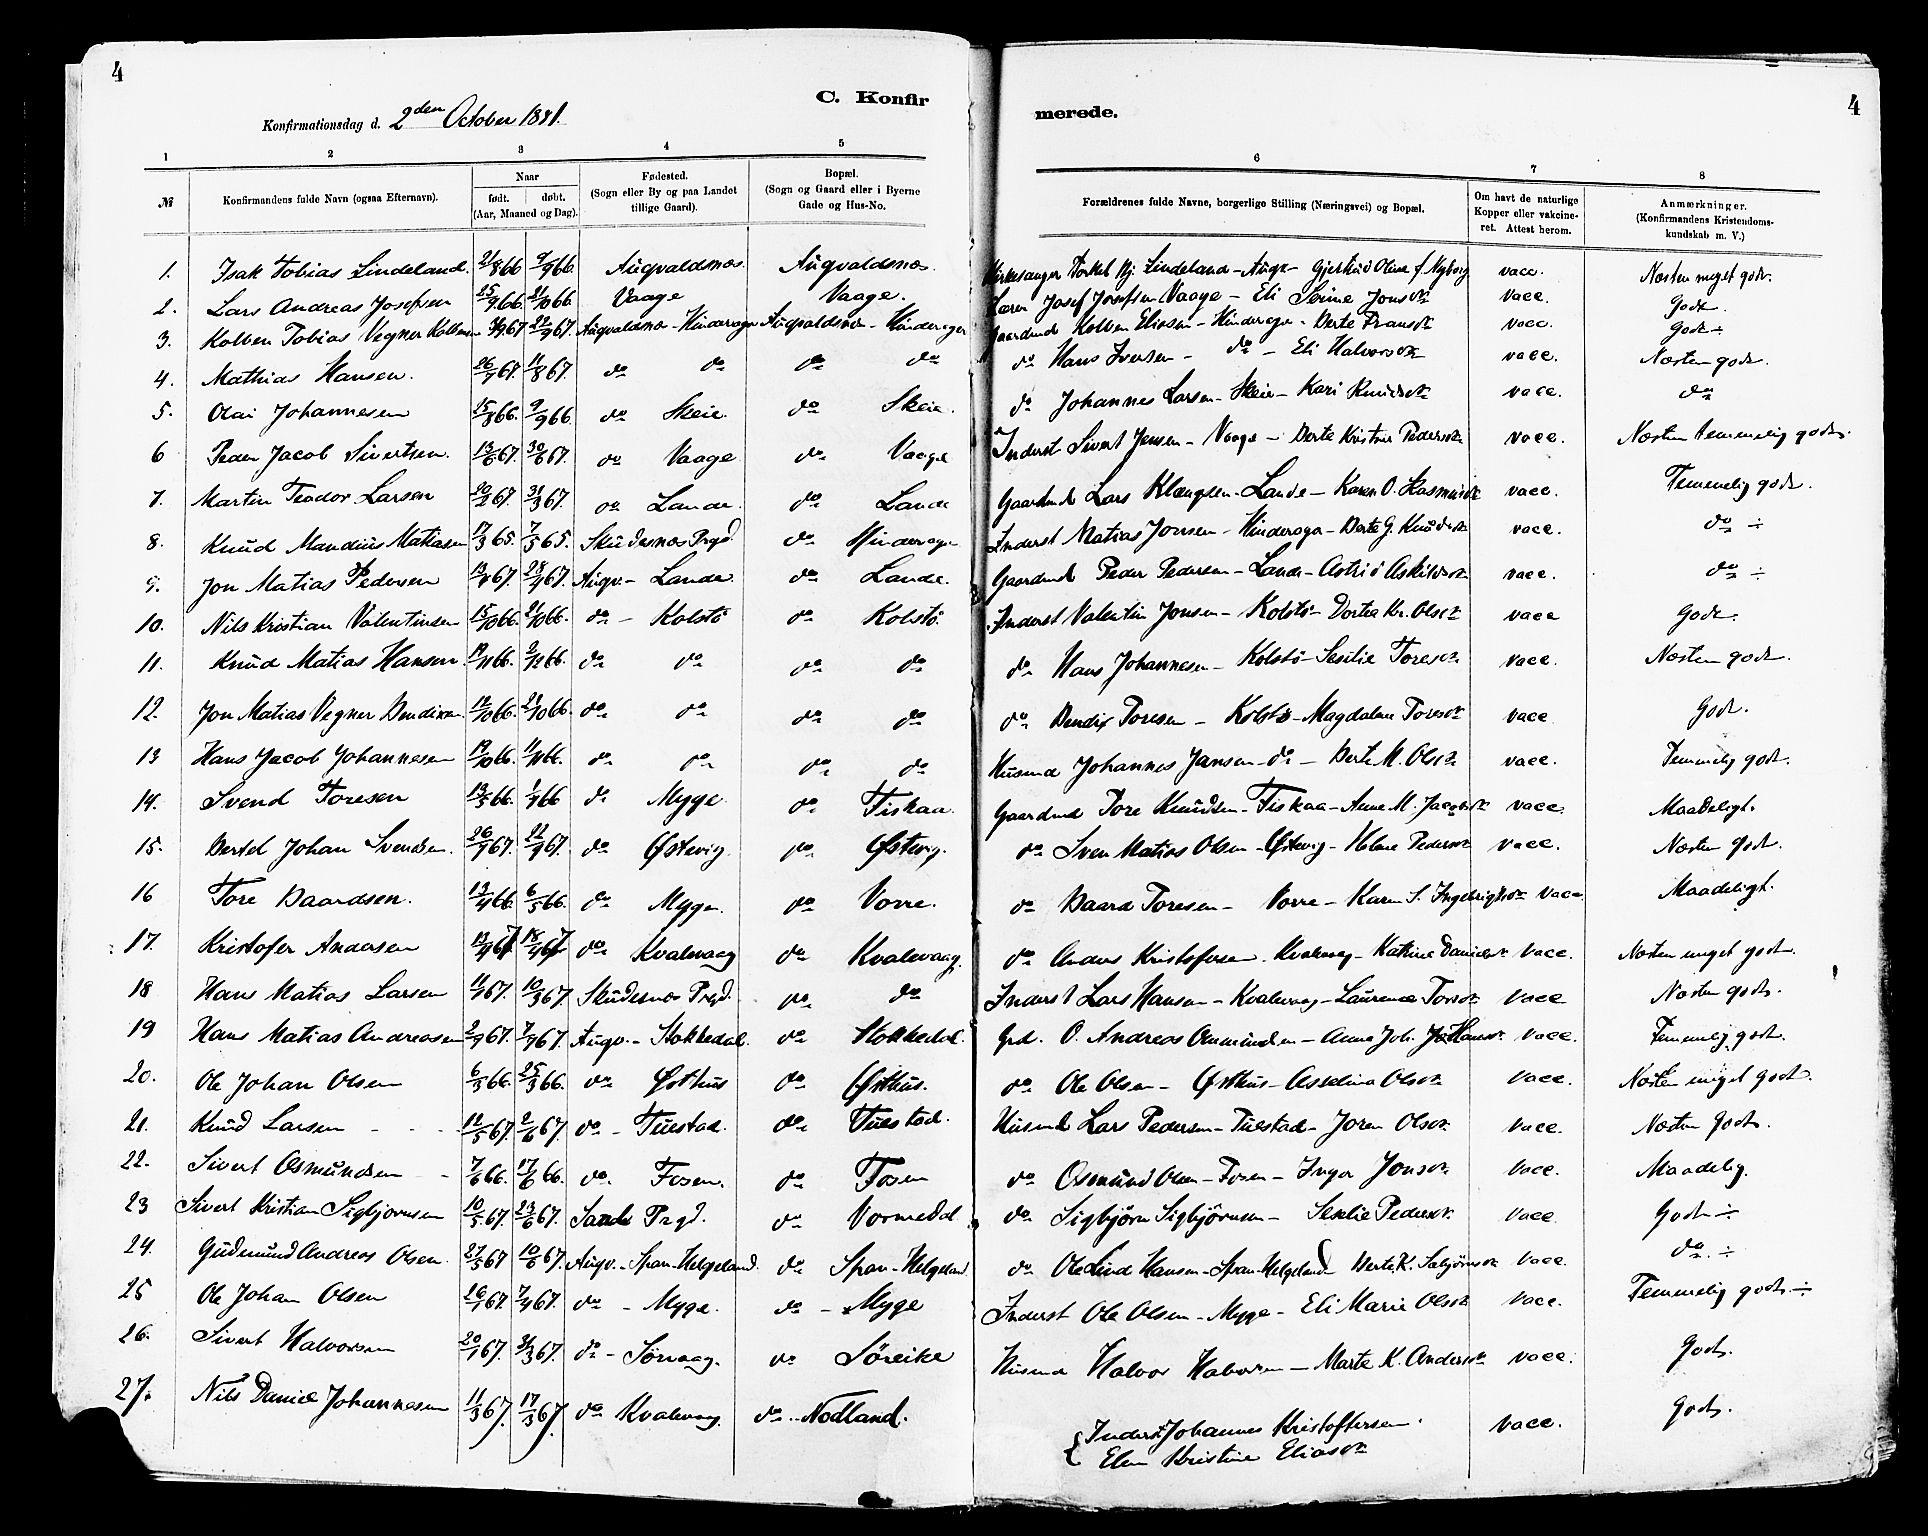 4
C. Konfir
merede.
4
Konfirmationsdag d. 2den October 1881.
1 2 3 4 5 6 7 8
№ Konfirmandens fulde Navn (ogsaa Efternavn). Naar født. døbt. (Aar, Maaned og Dag). Fødested. (Sogn eller By og paa Landet tillige Gaard). Bopæl. (Sogn og Gaard eller i Byerne Gade og Hus-No. Forældrenes fulde Navne, borgerlige Stilling (Næringsvei) og Bopæl. Om havt de naturlige Kopper eller vakcineret. Attest herom. Anmærkninger. (Konfirmandens Kristendomskundskab m. V.)
1. Isak Tobias Lindeland. 21/8 66 9/9 66. Augvaldsnæs. Augvaldsnæs. Kirkesanger Torkel Bj. Lindeland - Augv - Gjertrud Oline f. Nyborg vacc. Næsten meget godt.
2. Lars Andreas Josefsen 25/9 66. 21/10 66 Vaage Vaage. Lærer Josef Josefsen Vaage - Eli Serine Jonsdr vacc. Godt.
3. Kolben Tobias Vegner Kolbensen 22/9 67. Augvaldsnæs - Hinderager Augvaldsnæs - Hinderager Gaardmd Kolben Eliasen - Hinderager - Berte Fransdr vacc. godt ÷
4. Mathias Hansen. 26/7 67. 11/8 67. do do do do do Hans Iversen - do - Eli Halvorsdr vacc. Næsten godt.
5. Olai Johannesen 15/8 66. 9/9 66. do Skeie. do Skeie. do Johannes Larsen - Skeie - Kari Knudsdr vacc. do
6 Peder Jacob Sivertsen. 13/6 67. 30/6 67. do Vaage do Vaage Inderst Sivert Jensen - Vaage - Berte Kristine Pedersdr vacc. Næsten temmelig godt.
7. Martin Teodor Larsen 20/2 67. 31/3 67. do Lande. do Lande Gaardmd Lars Klængsen - Lande - Karen O. Rasmusdr vacc. Temmelig godt.
8. Knud Mandius Matiasen 17/3 65. 7/5 65. Skudesnæs Prgd. do Hinderager Inderst Matias Jonsen - Hinderager - Berte G. Knudsdr vacc. do ÷
9. Jon Matias Pedersen 13/4 67. 28/4 67. Augv. - Lande. do Lande. Gaardmd Peder Pedersen - Lande - Astrid Askildsdr vacc. do ÷
10. Nils Kristian Valentinsen 15/10 66. 21/10 66. do - Kolstö do Kolstö. Inderst Valentin Jonsen - Kolstö - Dortea Kr. Olsdr vacc Godt.
11. Knud Matias Hansen. 19/11 66. 2/12 66. do do do do do Hans Johannesen - Kolstö - Sesilie Toresdr vacc. Næsten godt.
12. Jon Matias Vegner Bendixen. 12/10 66. 21/10 66. do do do do do Bendix Toresen - Kolstö - Magdalene Toresdr vacc Godt.
13 Hans Jacob Johannesen 19/10 66. 11/11 66. do do do do Husmd Johannes Jansen - do - Berte M. Olsdr vacc. Temmelig godt.
14. Svend Toresen 13/5 66. 1/7 66 do Myge do Fiskaa. Gaardmd Tore Knudsen - Fiskaa - Anne M. Jacobsdr vacc. Maadeligt.
15. Bertel Johan Svendsen. 26/7 67. 22/9 67. do Østevig. do Østevig. do Sven Matias Olsen - Østevig - Helene Pedersdr vacc. Næsten godt.
16 Tore Baardsen. 13/4 66. 6/5 66. do Myge. do Vorre. do Baard Toresen - Vorre - Karen S. Ingebrigtsdr vacc Maadeligt.
17. Kristofer Andersen 13/4 67 18/4 67 do Kvalevaag do Kvalevaag. do Anders Kristofersen. Kvalevaag - Katrine Danielsdr vacc. Næsten meget godt.
18 Hans Matias Larsen 11/1 67. 10/3 67. Skudesnæs Prgd. do do Inderst Lars Hansen - Kvalevaag - Laurence Toresdr vacc Næsten godt.
19 Hans Matias Andreasen 2/7 67. 7/7 67. Augv. - Stokkedal. do Stokkedal. Grd. O. Andreas Ommundsen - Anna Joh. Johansdr vacc. Temmelig godt.
20. Ole Johan Olsen 6/3 66. 25/3 66. do Østhus do Østhus. do Ole Olsen - Østhus - Asseline Olsdr vacc. Næsten meget godt.
21. Knud Larsen - - - 12/5 67. 2/6 67. do - Tuestad. do Tuestad. Husmd Lars Pedersen - Tuestad - Joren Olsdr. vacc. Næsten Godt.
22. Sivert Osmundsen - - 7/6 66. 17/6 66. do. Fosen. do Fosen do Osmund Olsen - Fosen - Inger Jonsdr vacc. Maadelig.
23 Sivert Kristian Sigbjørnsen 10/5 67. 23/6 67. Sands Prgd. do Vormedal do Sigbjørn Sigbjørnsen - Seselie Pedersdr. vacc. Godt ÷
24. Gudmund Andreas Olsen. 27/5 67 10/6 67. Augv. - Span-Helgeland. do Span-Helgeland. do Ole Lind Hansen - Span-Helgeland Berte K. Sebjørnsdr vacc. do ÷
25 Ole Johan Olsen 26/1 67. 7/4 67. do - Myge. do - Myge Inderst Ole Olsen - Myge - Eli Marie Olsdr vacc. Temmelig godt ÷
26. Sivert Halvorsen 20/1 67. 31/3 67. do - Sörvaag. do Söreike Husmd Halvor Halvorsen - Marte K. Andersdr vacc. Godt.
27. Nils Daniel Johannesen 11/3 67. 17/3 67. do Kvalevaag. do Nodland. Inderst Johannes Kristoffersen. vacc. Godt.
Elen Kristine Eliasdr